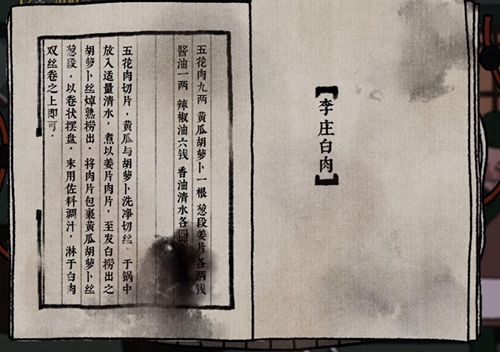 【李庄白肉】
五花肉九两 黄瓜胡萝卜一根 葱段姜片各两钱
酱油一两 辣椒油六钱 香油清水各四
五花肉切片，黄瓜与胡萝卜洗净切丝。于锅中
放入适量清水，煮以姜片肉片，至发白捞出之
胡萝卜丝焯熟捞出。将肉片包裹黄瓜胡萝卜丝
葱段，以卷状摆盘。末用佐料调汁，淋于白肉
双丝卷之上即可。